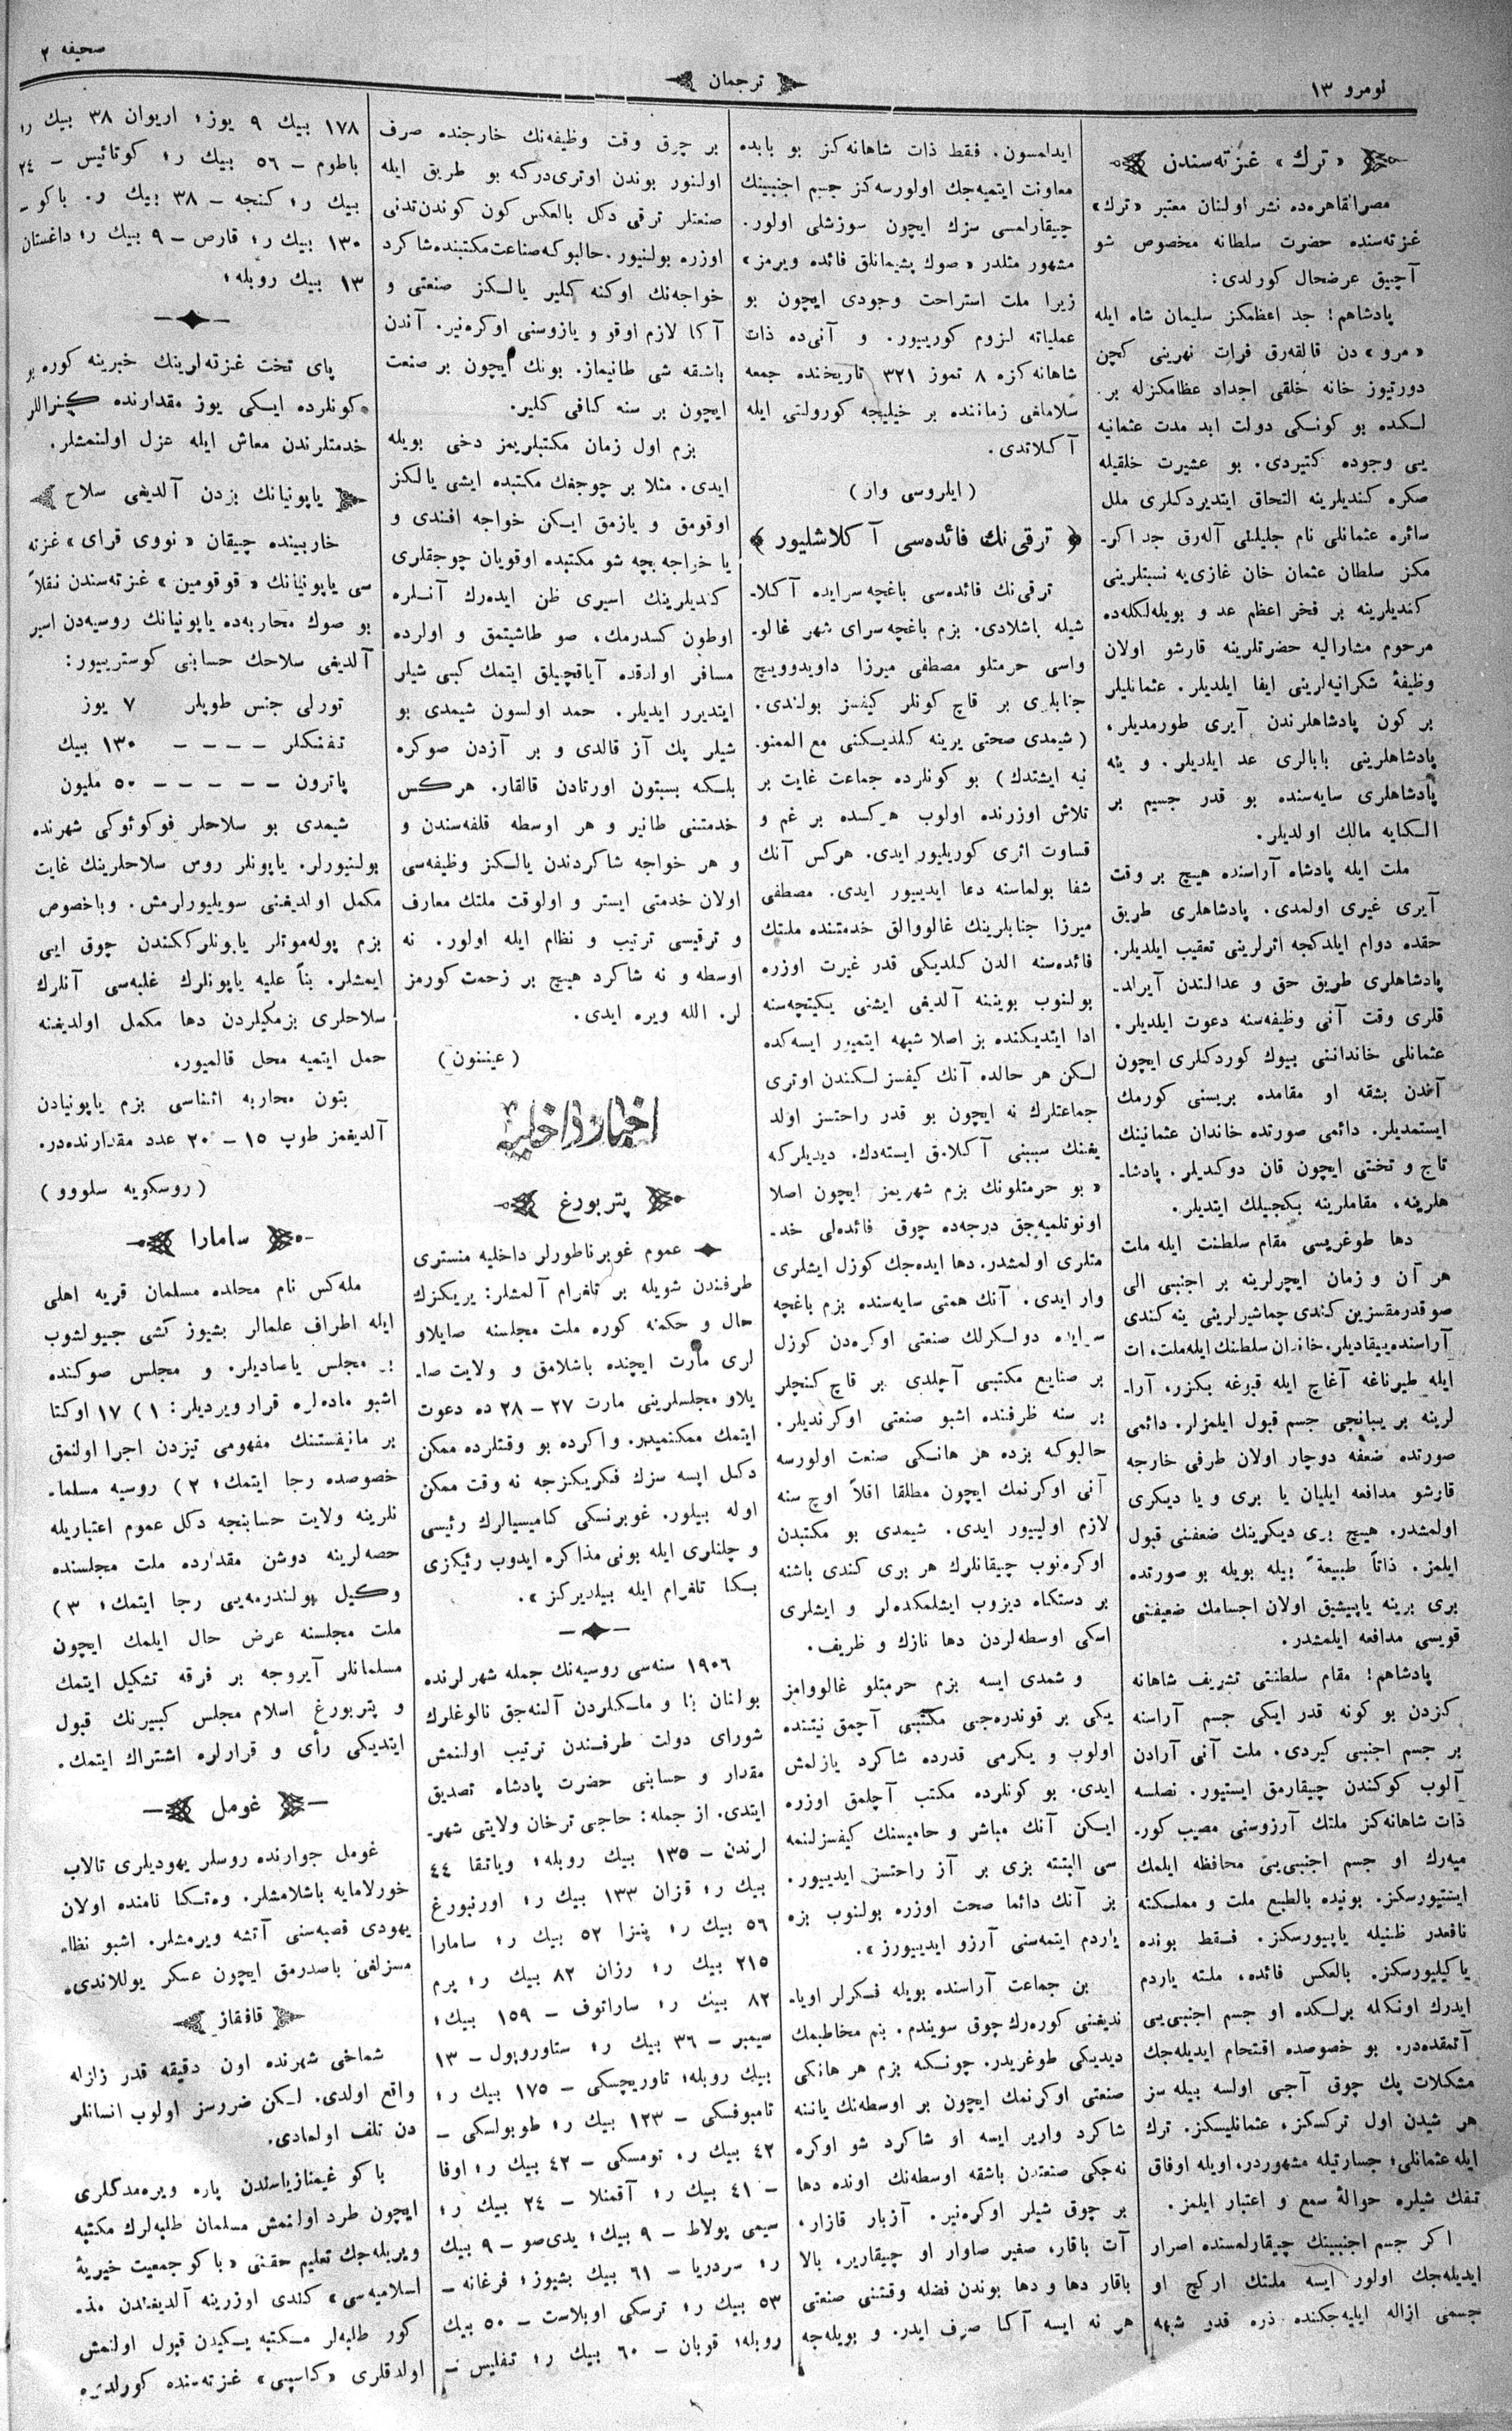 نومرو ١٣
ترجمان
صحیفه ٢
« ترك » غزته‌سندن
مصرالقاهره‌ده نشر اولنان معتبر «ترك»
غزته‌سنده حضرت سلطانه مخصوص شو
آچیق عرضحال كورلدی:
پادشاهم! جد اعظمكز سلیمان شاه ایله
«مرو» دن قالقه‌رق فرات نهرینی كچن
دورتیوز خانه خلقی اجداد عظامكزله بر-
لكده بو كونكی دولت ابد مدت عثمانیه
یی وجوده كتیردی. بو عشیرت خلقیله
صكره كندیلرینه التحاق ایتدیردكلری ملل
سائره عثمانلی نام جلیلنی آله‌رق جد اكر-
مكز سلطان عثمان خان غازی‌یه نسبتلرینی
كندیلرینه بر فخر اعظم عد و بویله‌لكله‌ده
مرحوم مشارالیه حضرتلرینه قارشو اولان
وظیفهٔ شكرانیه‌لرینی ایفا ایلدیلر. عثمانلیلر
بر كون پادشاهلرندن آیری طورمدیلر،
پادشاهلرینی بابالری عد ایلدیلر. و ینه
پادشاهلری سایه‌سنده بو قدر جسیم بر
الكایه مالك اولدیلر.
ملت ایله پادشاه آراسنده هیچ بر وقت
آیری غیری اولمدی. پادشاهلری طریق
حقده دوام ایلدكجه اثرلرینی تعقیب ایلدیلر.
پادشاهلری طریق حق و عدالتدن آیرلد-
قلری وقت آنی وظیفه‌سنه دعوت ایلدیلر.
عثمانلی خاندانینی بیوك كوردكلری ایچون
آندن بشقه او مقامده بریسنی كورمك
ایستمدیلر. دائمی صورتده خاندان عثمانینك
تاج و تختی ایچون قان دوكدیلر. پادشا-
هلرینه، مقاملرینه بكجیلك ایتدیلر.
دها طوغریسی مقام سلطنت ایله ملت
هر آن و زمان ایچرلرینه بر اجنبی الی
صوقدرمقسزین كندی چماشیرلرینی ینه كندی
آراسنده ییقادیلر. خاندان سلطنك ایله ملت، ات
ایله طیرناغه آغاچ ایله قبوغه بكزر. آرا-
لرینه بر یبانجی جسم قبول ایلمزلر. دائمی
صورتده ضعفه دوچار اولان طرفی خارجه
قارشو مدافعه ایلیان یا بری و یا دیكری
اولمشدر. هیچ بری دیكرینك ضعفنی قبول
ایلمز. ذاتاً طبیعةً بیله بویله بو صورتده
بری برینه یاپیشیق اولان اجسامك ضعیفنی
قویسی مدافعه ایلمشدر.
پادشاهم! مقام سلطنتی تشریف شاهانه
كزدن بو كونه قدر ایكی جسم آراسنه
بر جسم اجنبی كیردی. ملت آنی آرادن
آلوب كوكندن چیقارمق ایستیور. نصلسه
ذات شاهانه‌كز ملتك آرزوسنی مصیب كور-
میه‌رك او جسم اجنبی‌یی محافظه ایلمك
ایستیورسكز. بونیده بالطبع ملت و مملكته
نافعدر ظنیله یاپیورسكز. فقط بونده
یاكیلیورسكز. بالعكس فائده، ملته یاردم
ایدرك اونكله برلكده او جسم اجنبی‌یی
آتمقده‌در. بو خصوصده اقتحام ایدیله‌جك
مشكلات پك چوق آجی اولسه بیله سز
هر شیدن اول تركسكز، عثمانلیسكز. ترك
ایله عثمانلی؛ جسارتیله مشهوردر. اویله اوفاق
تفك شیلره حوالهٔ سمع و اعتبار ایلمز.
اكر جسم اجنبینك چیقارلمسنده اصرار
ایدیله‌جك اولور ایسه ملتك اركچ او
جسمی ازاله ایلیه‌جكنده ذره قدر شبهه
ایدلمسون. فقط ذات شاهانه‌كز بو بابده
معاونت ایتمیه‌جك اولورسه‌كز جسم اجنبینك
چیقارلمسی سزك ایچون سوزشلی اولور.
مشهور مثلدر «صوك پشیمانلق فائده ویرمز»
زیرا ملت استراحت وجودی ایچون بو
عملیاته لزوم كورییور. و آنی‌ده ذات
شاهانه‌كزه ٨ تموز ٣٢١ تاریخنده جمعه
سلاملغی زماننده بر خیلیجه كورولتی ایله
آكلاتدی.
(ایلروسی وار)
ترقی‌نك فائده‌سی آكلاشلیور
ترقی‌نك فائده‌سی باغچه‌سرایده آكلا-
شیله باشلادی. بزم باغچه‌سرای شهر غالو-
واسی حرمتلو مصطفی میرزا داویدوویچ
جنابلری بر قاچ كونلر كیفسز بولندی.
(شیمدی صحتی یرینه كلدیكنی مع الممنو-
نیه ایشتدك) بو كونلرده جماعت غایت بر
تلاش اوزرنده اولوب هركسده بر غم و
قساوت اثری كوریلیور ایدی. هركس آنك
شفا بولماسنه دعا ایدییور ایدی. مصطفی
میرزا جنابلرینك غالووالق خدمتنده ملتك
فائده‌سنه الدن كلدیكی قدر غیرت اوزره
بولنوب بویننه آلدیغی ایشنی یكیتچه‌سنه
ادا ایتدیكنده بز اصلا شبهه ایتمیور ایسه‌كده
لكن هر حالده آنك كیفسزلكندن اوتری
جماعتلرك نه ایچون بو قدر راحتسز اولد
یغنك سببنی آكلامق ایسته‌دك. دیدیلركه
«بو حرمتلونك بزم شهریمز ایچون اصلا
اونوتلمیه‌جق درجه‌ده چوق فائده‌لی خد-
متلری اولمشدر. دها ایده‌جك كوزل ایشلری
وار ایدی. آنك همتی سایه‌سنده بزم باغچه
سرایده دولكرلك صنعتی اوكره‌دن كوزل
بر صنایع مكتبی آچلدی بر قاچ كنجلر
بر سنه ظرفنده اشبو صنعتی اوكرندیلر.
حالبوكه بزده هر هانكی صنعت اولورسه
آنی اوكرنمك ایچون مطلقا اقلاً اوچ سنه
لازم اولییور ایدی. شیمدی بو مكتبدن
اوكره‌نوب چیقانلرك هر بری كندی باشنه
بر دستكاه دیزوب ایشلمكده‌لر و ایشلری
اسكی اوسطه‌لردن دها نازك و ظریف.
و شمدی ایسه بزم حرمتلو غالووامز
یكی بر قوندره‌جی مكتبی آچمق نیتنده
اولوب و یكرمی قدرده شاكرد یازلمش
ایدی. بو كونلرده مكتب آچلمق اوزره
ایكن آنك مباشر و حامیسنك كیفسزلنمه
سی البتته بزی بر آز راحتسز ایدییور.
بز آنك دائما صحت اوزره بولنوب بزه
یاردم ایتمه‌سنی آرزو ایدییورز».
بن جماعت آراسنده بویله فكرلر اویا-
ندیغنی كوره‌رك چوق سویندم. بنم مخاطبمك
دیدیكی طوغریدر. چونكه بزم هر هانكی
صنعتی اوكرنمك ایچون بر اوسطه‌نك یاننه
شاكرد واریر ایسه او شاكرد شو اوكره
نه‌جكی صنعتدن باشقه اوسطه‌نك اونده دها
بر چوق شیلر اوكره‌نیر. آزبار قازار،
آت باقار، صغیر صاوار او چیقاریر، بالا
باقار دها و دها بوندن فضله وقتنی صنعتی
هر نه ایسه آكا صرف ایدر. و بویله‌جه
بر چوق وقت وظیفه‌نك خارجنده صرف
اولنور بوندن اوتری‌دركه بو طریق ایله
صنعتلر ترقی دكل بالعكس كون كوندن تدنی
اوزره بولنیور. حالبوكه صناعت مكتبنده شاكرد
خواجه‌نك اوكنه كلیر یالكز صنعتی و
آكا لازم اوقو و یازوسنی اوكره‌نیر. آندن
باشقه شی طانیماز. بونك ایچون بر صنعت
ایچون بر سنه كافی كلیر.
بزم اول زمان مكتبلریمز دخی بویله
ایدی. مثلا بر چوجغك مكتبده ایشی یالكز
اوقومق و یازمق ایكن خواجه افندی و
یا خواجه‌بچه شو مكتبده اوقویان چوجقلری
كندیلرینك اسیری ظن ایده‌رك آنلره
اوطون كسدرمك، صو طاشیتمق و اولرده
مسافر اولدقده آیاقچیلق ایتمك كبی شیلر
ایتدیرر ایدیلر. حمد اولسون شیمدی بو
شیلر پك آز قالدی و بر آزدن صوكره
بلكه بسبتون اورتادن قالقار. هركس
خدمتنی طانیر و هر اوسطه قلفه‌سندن و
و هر خواجه شاكردندن یالكز وظیفه‌سی
اولان خدمتی ایستر و اولوقت ملتك معارف
و ترقیسی ترتیب و نظام ایله اولور. نه
اوسطه و نه شاكرد هیچ بر زحمت كورمز
لر. الله ویره ایدی.
(عیننون)
اخبار داخلیه
پتربورغ
عموم غوبرناطورلر داخلیه منستری
طرفندن شویله بر تلغرام آلمشلر: یریكزك
حال و حكمنه كوره ملت مجلسنه صایلاو
لری مارت ایچنده باشلامق و ولایت صا-
یلاو مجلسلرینی مارت ٢٧ – ٢٨ ده دعوت
ایتمك ممكنمیدر. واكرده بو وقتلرده ممكن
دكل ایسه سزك فكریكزجه نه وقت ممكن
اوله بیلور. غوبرنسكی كامیسیالرك رئیسی
و چلنلری ایله بونی مذاكره ایدوب رئیكزی
بكا تلغرام ایله بیلدیركز».
١٩٠٦ سنه‌سی روسیه‌نك جمله شهرلرنده
بولنان بنا و ملكلردن آلنه‌جق نالوغلرك
شورای دولت طرفندن ترتیب اولنمش
مقدار و حسابنی حضرت پادشاه تصدیق
ایتدی. از جمله: حاجی ترخان ولایتی شهر-
لرندن – ١٣٥ بیك روبله؛ ویاتقا ٤٤
بیك ر؛ قزان ١٣٣ بیك ر؛ اورنبورغ
٥٦ بیك ر؛ پنزا ٥٢ بیك ر؛ سامارا
٢١٥ بیك ر؛ رزان ٨٢ بیك ر؛ پرم
٨٢ بیك ر؛ ساراتوف – ١٥٩ بیك؛
سیمبر – ٣٦ بیك ر؛ ستاوروپول – ١٣
بیك روبله؛ تاوریچسكی – ١٧٥ بیك ر؛
تامبوفسكی – ١٢٣ بیك ر؛ طوبولسكی –
٤٢ بیك ر، تومسكی – ٤٢ بیك ر؛ اوفا
– ٤١ بیك ر؛ آقمنلا – ٢٤ بیك ر؛
سیمی پولاط – ٩ بیك؛ یدی‌صو – ٩ بیك
ر؛ سردریا – ٦١ بیك بشیوز؛ فرغانه –
٥٣ بیك ر؛ ترسكی اوبلاست – ٥٠ بیك
روبله؛ قوبان – ٦٠ بیك ر؛ تفلیس –
١٧٨ بیك ٩ یوز؛ اریوان ٣٨ بیك ر؛
باطوم – ٥٦ بیك ر؛ كوتائیس – ٢٤
بیك ر؛ كنجه – ٣٨ بیك ر. باكو –
١٣٠ بیك ر؛ قارص – ٩ بیك ر؛ داغستان
١٣ بیك روبله؛
پای تخت غزته‌لرینك خبرینه كوره بو
كونلرده ایكی یوز مقدارنده گنراللر
خدمتلرندن معاش ایله عزل اولنمشلر.
یاپونیانك بزدن آلدیغی سلاح
خاربینده چیقان «نووی قرای» غزته
سی یاپونیانك «قوقومین» غزته‌سندن نقلاً
بو صوك محاربه‌ده یاپونیانك روسیه‌دن اسیر
آلدیغی سلاحك حسابنی كوسترییور:
تورلی جنس طوپلر ٧ یوز
تفنكلر – – – – ١٣٠ بیك
پاترون – – – – – ٥٠ ملیون
شیمدی بو سلاحلر فوكوئوكی شهرنده
بولنیورلر. یاپونلر روس سلاحلرینك غایت
مكمل اولدیغنی سویلیورلرمش. وباخصوص
بزم پوله‌موتلر یاپونلرككندن چوق ایی
ایمشلر. بناً علیه یاپونلرك غلبه‌سی آنلرك
سلاحلری بزمكیلردن دها مكمل اولدیغنه
حمل ایتمیه محل قالمیور.
بتون محاربه اثناسی بزم یاپونیادن
آلدیغمز طوپ ١٥ – ٢٠ عدد مقدارنده‌در.
(روسكویه سلووو)
سامارا
مله‌كس نام محلده مسلمان قریه اهلی
ایله اطراف علمالر بشیوز كشی جیولشوب
بر مجلس یاصادیلر. و مجلس صوكنده
اشبو ماده‌لره قرار ویردیلر: ١) ١٧ اوكتا
بر مانیفستنك مفهومی تیزدن اجرا اولنمق
خصوصده رجا ایتمك؛ ٢) روسیه مسلما-
نلرینه ولایت حسابنجه دكل عموم اعتباریله
حصه‌لرینه دوشن مقدارده ملت مجلسنده
وكیل بولندرمه‌یی رجا ایتمك؛ ٣)
ملت مجلسنه عرض حال ایلمك ایچون
مسلمانلر آیروجه بر فرقه تشكیل ایتمك
و پتربورغ اسلام مجلس كبیرنك قبول
ایتدیكی رأی و قرارلره اشتراك ایتمك.
غومل
غومل جوارنده روسلر یهودیلری تالاب
خورلامایه باشلامشلر. وه‌تكا نامنده اولان
یهودی قصبه‌سنی آتشه ویرمشلر. اشبو نظا-
مسزلغی باصدرمق ایچون عسكر یوللاندی.
قافقاز
شماخی شهرنده اون دقیقه قدر زلزله
واقع اولدی. لكن ضررسز اولوب انسانلر
دن تلف اولمادی.
باكو غیمنازیاسندن پاره ویره‌مدكلری
ایچون طرد اولنمش مسلمان طلبه‌لرك مكتبه
ویریله‌جك تعلیم حقنی «باكو جمعیت خیریهٔ
اسلامیه‌سی» كندی اوزرینه آلدیغندن مذ-
كور طلبه‌لر مكتبه یكیدن قبول اولنمش
اولدقلری «كاسپی» غزته‌سنده كورلدی.